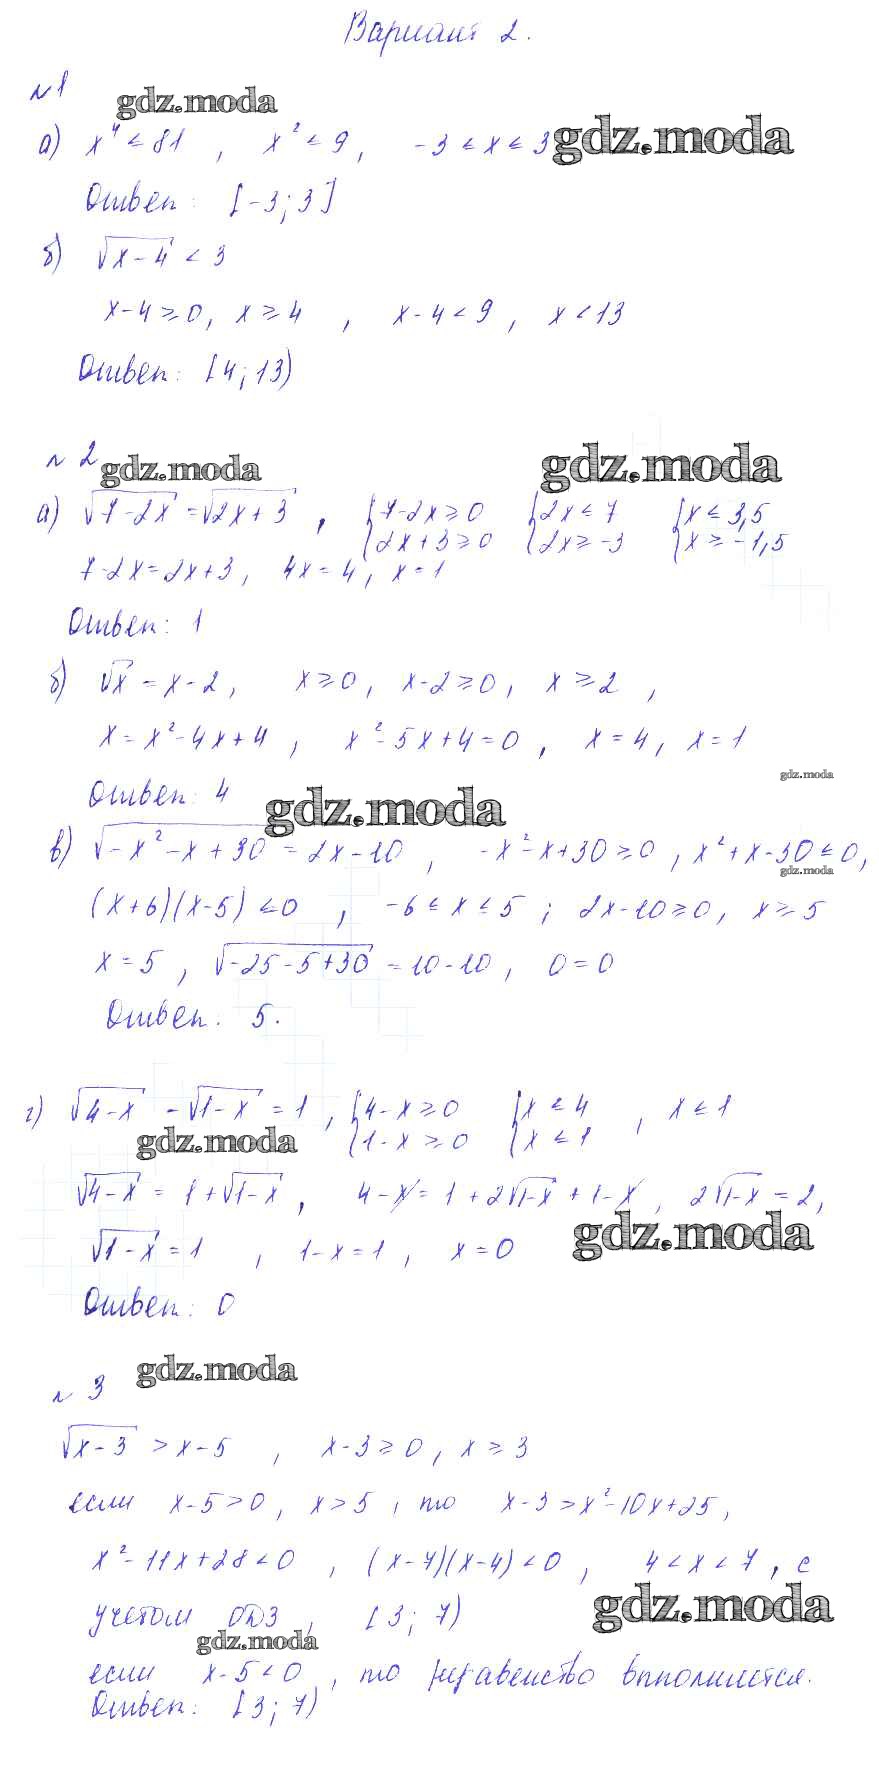 Вариант 2.
№1
gdz.moda
а) x⁴ ≤ 81, x² ≤ 9, -3 ≤ x ≤ 3 gdz.moda
Ответ: [-3; 3]
б) √(x-4) < 3
x-4 ≥ 0, x ≥ 4, x-4 < 9, x < 13
Ответ: [4; 13)
№2
gdz.moda gdz.moda
а) √(7-2x) = √(2x+3), {7-2x ≥ 0 {2x ≤ 7 {x ≤ 3,5
{2x+3 ≥ 0 {2x ≥ -3 {x ≥ -1,5
7-2x = 2x+3, 4x = 4, x = 1
Ответ: 1
б) √x = x-2, x ≥ 0, x-2 ≥ 0, x ≥ 2,
x = x²-4x+4, x²-5x+4 = 0, x = 4, x = 1
gdz.moda
Ответ: 4 gdz.moda
в) √(-x²-x+30) = 2x-10, -x²-x+30 ≥ 0, x²+x-30 ≤ 0,
gdz.moda
(x+6)(x-5) ≤ 0, -6 ≤ x ≤ 5; 2x-10 ≥ 0, x ≥ 5
x = 5, √(-25-5+30) = 10-10, 0 = 0
Ответ: 5.
г) √(4-x) - √(1-x) = 1, {4-x ≥ 0 {x ≤ 4, x ≤ 1
{1-x ≥ 0 {x ≤ 1
gdz.moda
√(4-x) = 1+√(1-x), 4-x = 1+2√(1-x)+1-x, 2√(1-x) = 2,
√(1-x) = 1, 1-x = 1, x = 0 gdz.moda
Ответ: 0
gdz.moda
№3
√(x-3) > x-5, x-3 ≥ 0, x ≥ 3
если x-5 > 0, x > 5, то x-3 > x²-10x+25,
x²-11x+28 < 0, (x-7)(x-4) < 0, 4 < x < 7, с
учетом ОДЗ, [3; 7) gdz.moda
gdz.moda
если x-5 < 0, то неравенство выполняется.
Ответ: [3; 7)